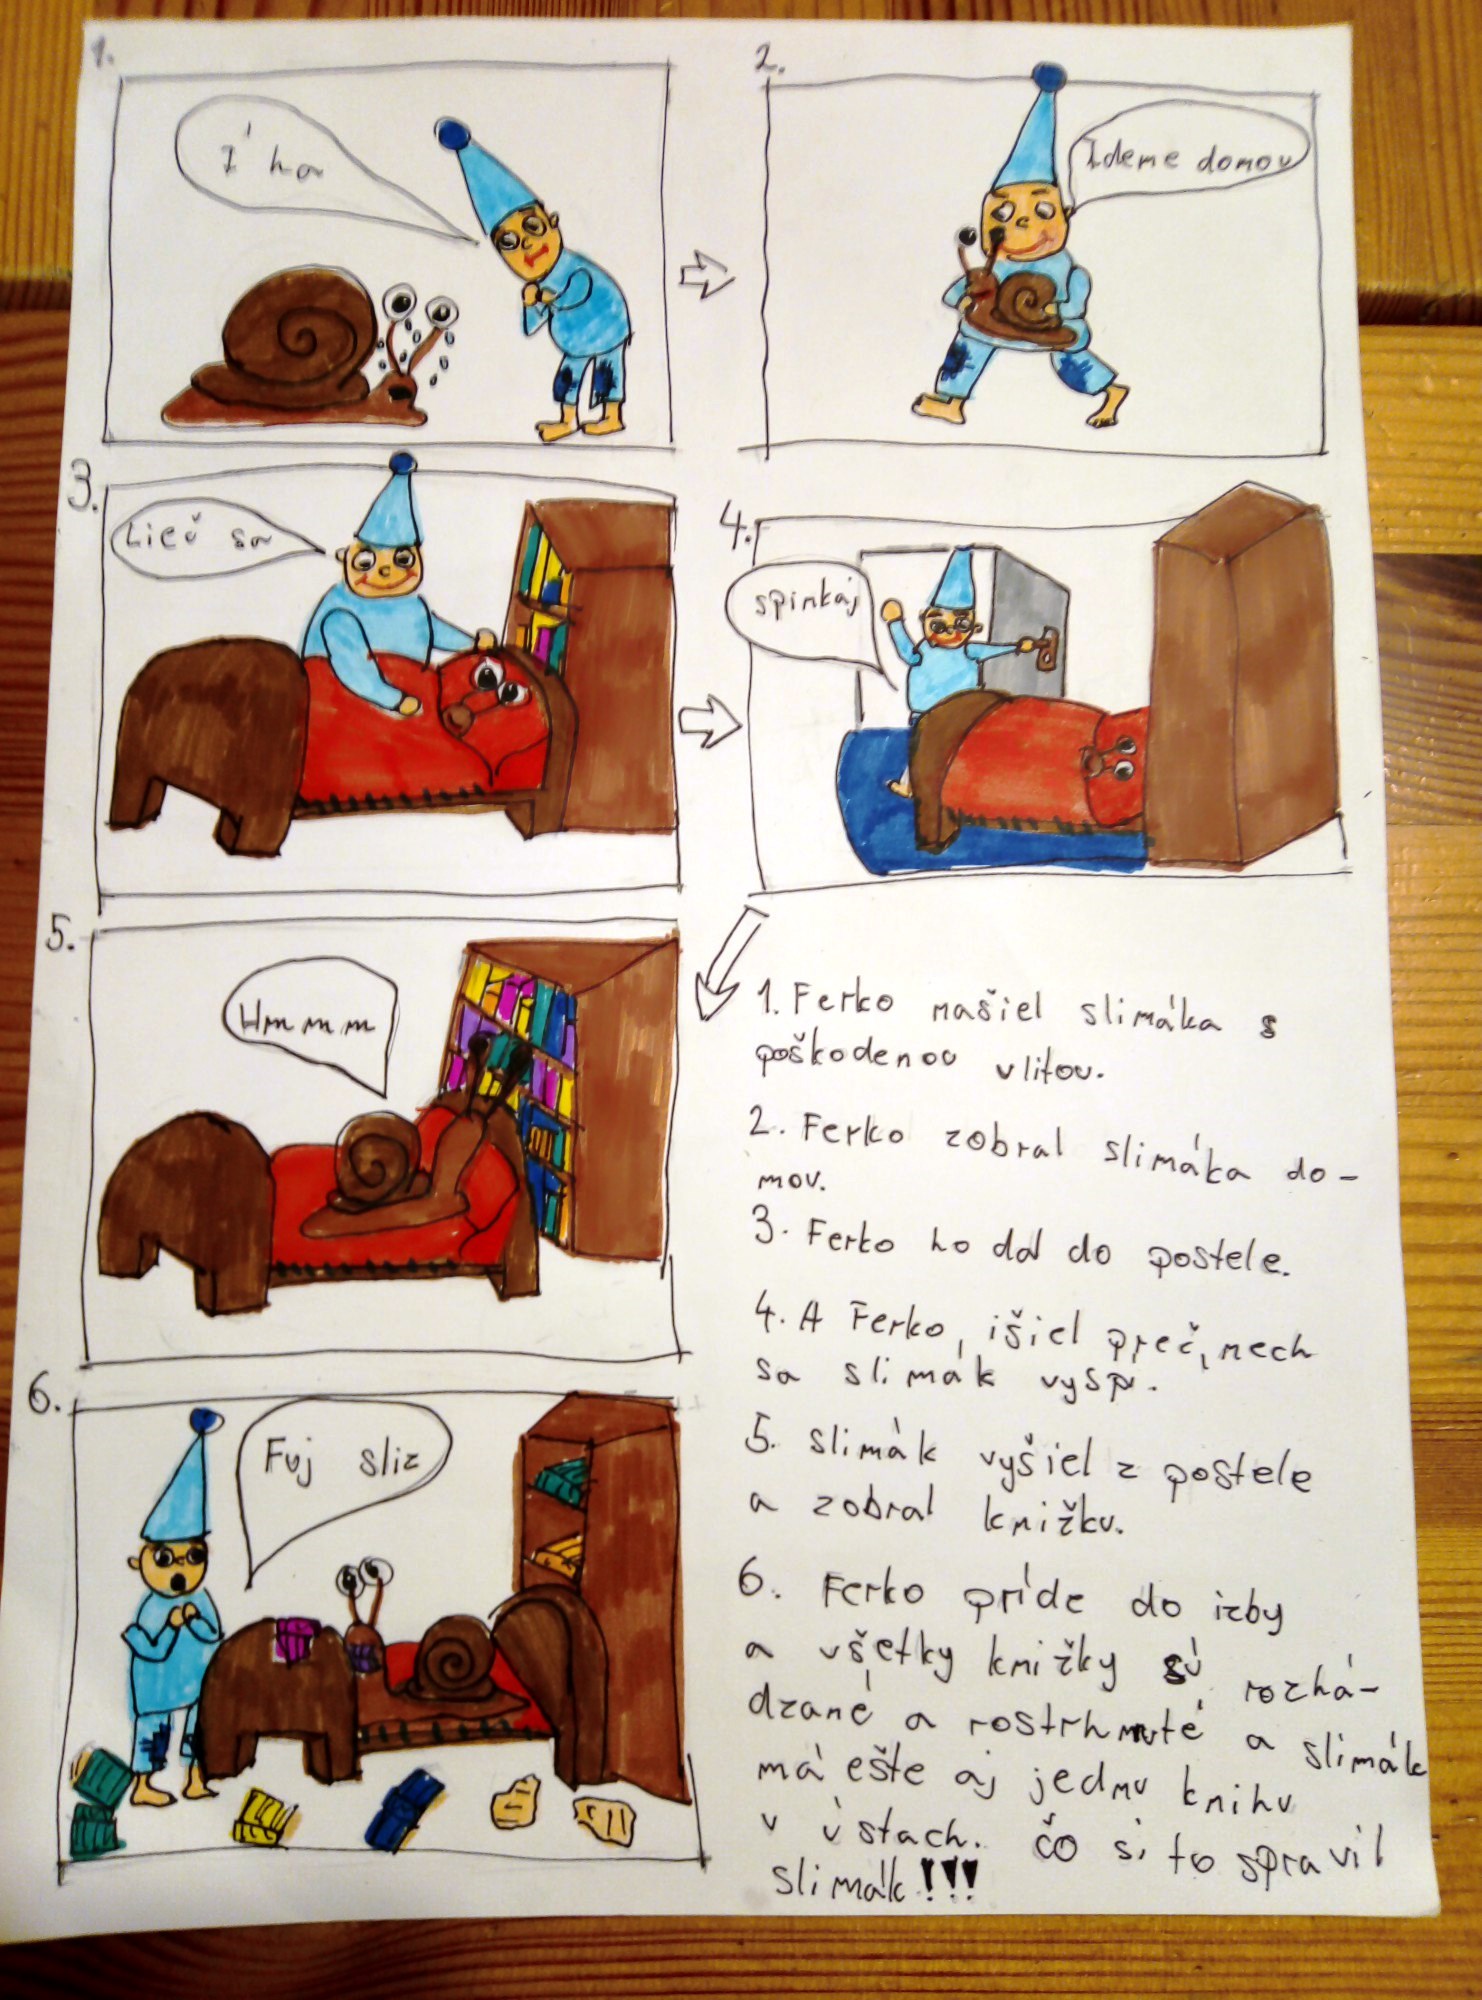 1.
Í ha
2.
Ideme domov
3.
Lieč sa
4.
spinkaj
5.
Hmmm
6.
Fuj sliz
1. Ferko našiel slimáka s
poškodenou ulitou.
2. Ferko zobral slimáka do-
mov.
3. Ferko ho dal do postele.
4. A Ferko, išiel preč, nech
sa slimák vyspí.
5. slimák vyšiel z postele
a zobral knižku.
6. Ferko príde do izby
a všetky knižky sú rozhá-
dzané a rostrhnuté a slimák
má ešte aj jednu knihu
v ústach. čo si to spravil
slimák!!!